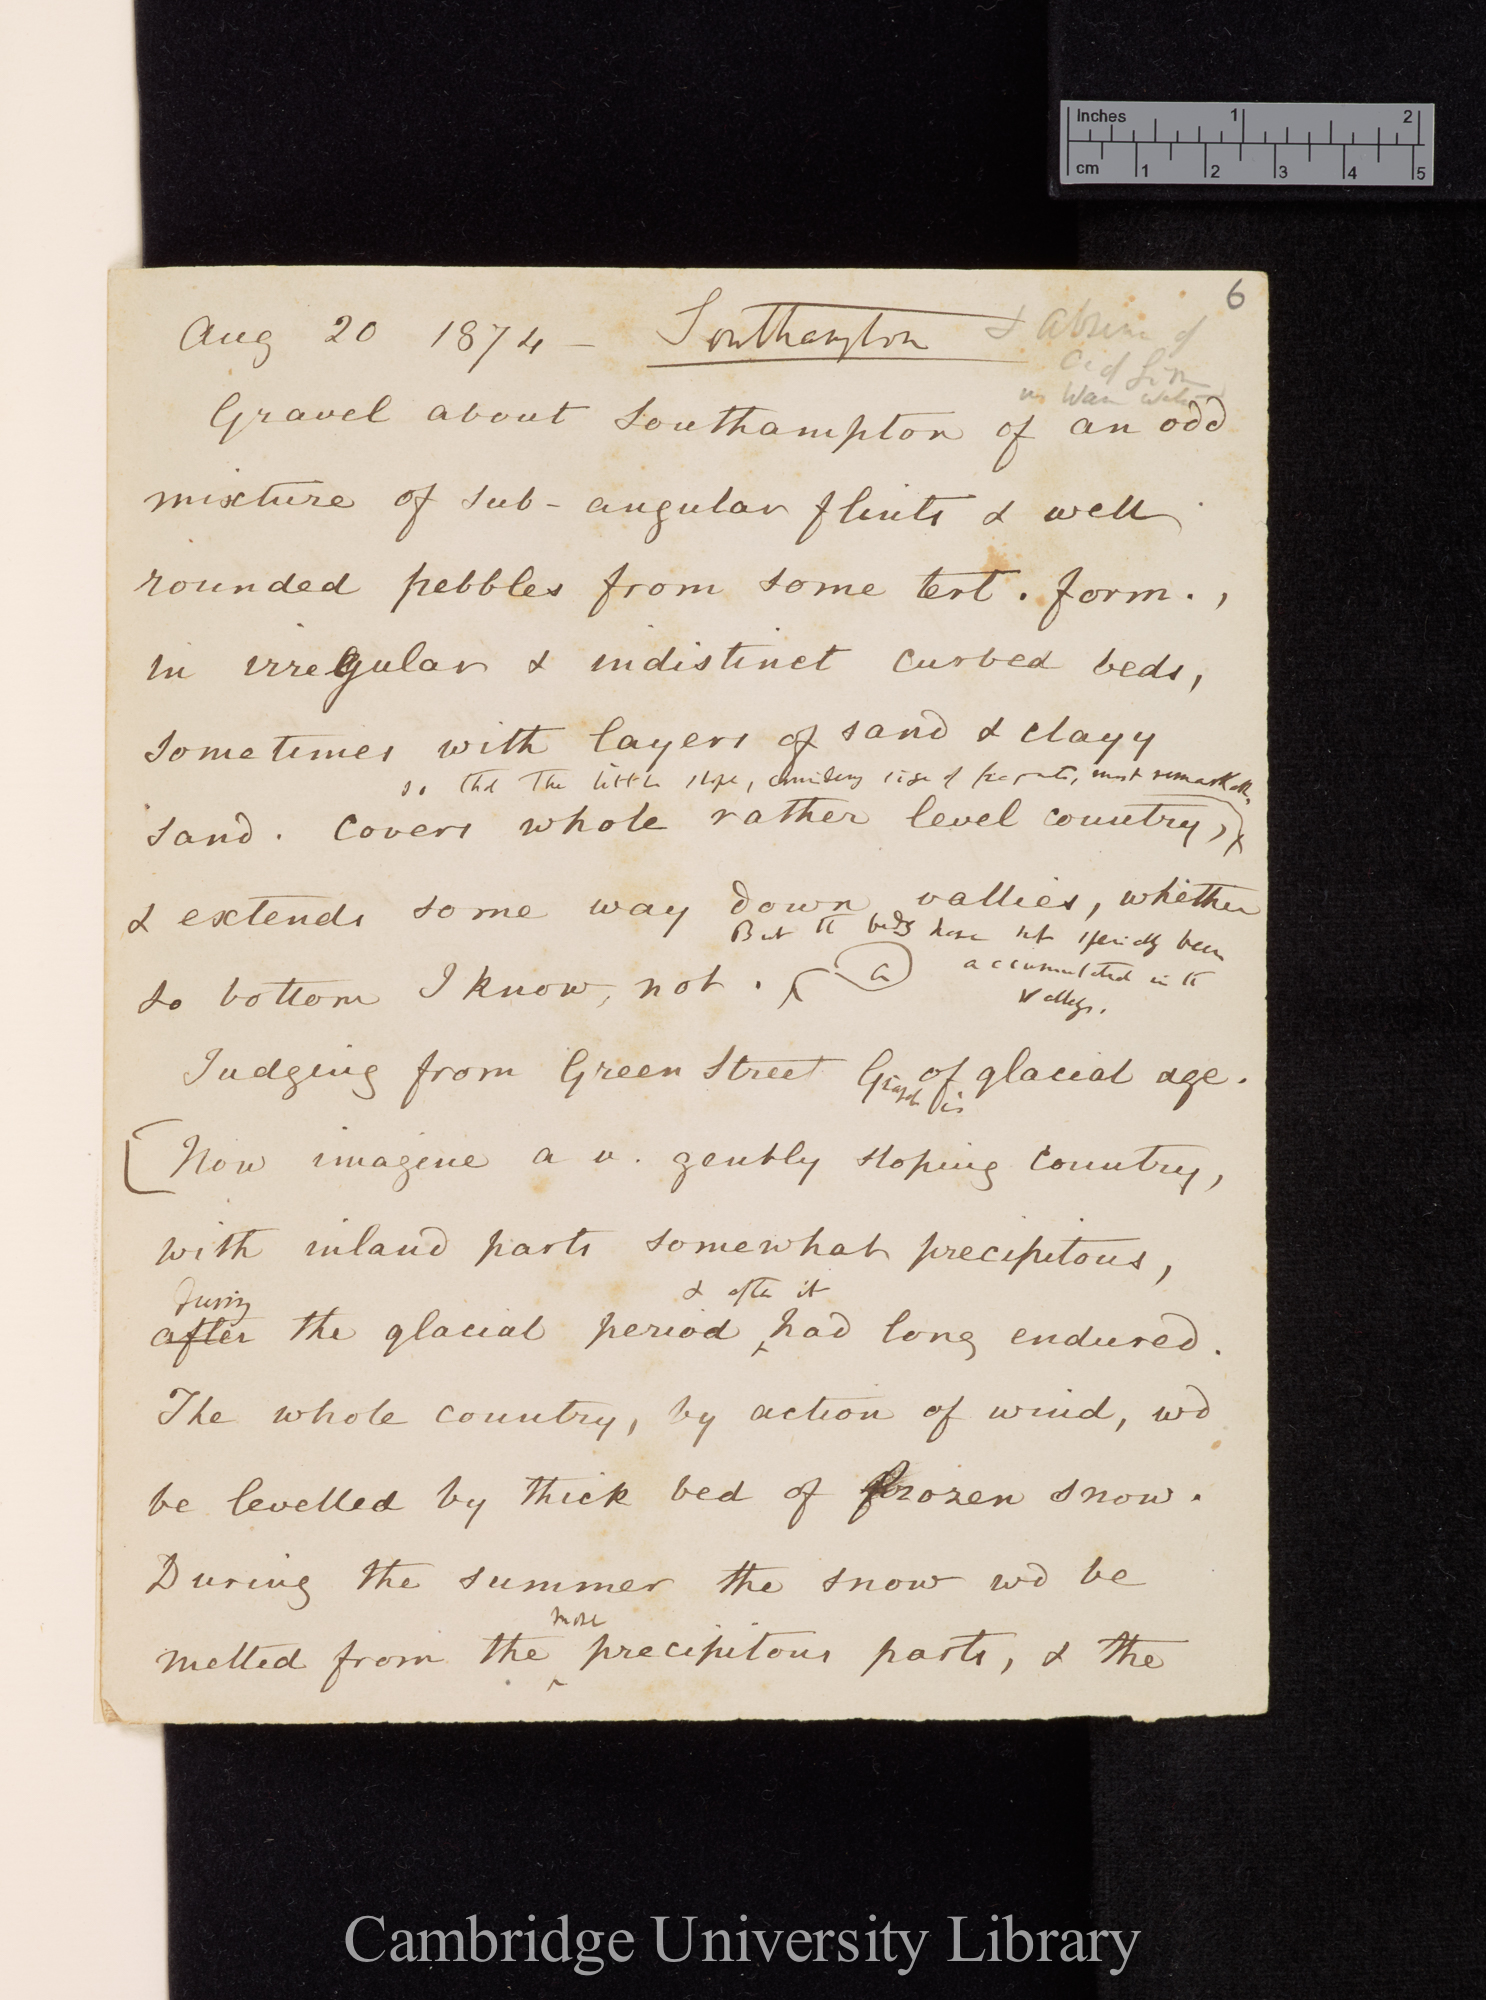 6
Aug 20 1874 – Southampton
& absence of
Gravel about Southampton of an odd
mixture of sub-angular flints & well
rounded pebbles from some tert. form.,
in irregular & indistinct curved beds,
sometimes with layers of sand & clayy
so that the little slope, considering size of fragments, most remarkable
sand. Covers whole rather level country,
& extends some way down vallies, whether
But the beds have not specially been
accumulated in the
valleys.
to bottom I know, not. (a)
Judging from Green Street Gravel is of glacial age.
[Now imagine a v. gently sloping country,
with inland parts somewhat precipitous,
during & after it
after the glacial period had long endured.
The whole country, by action of wind, wd
be levelled by thick bed of frozen snow.
During the summer the snow wd be
more
melted from the precipitous parts, & the
Inches 1 2
cm 1 2 3 4 5
Cambridge University Library